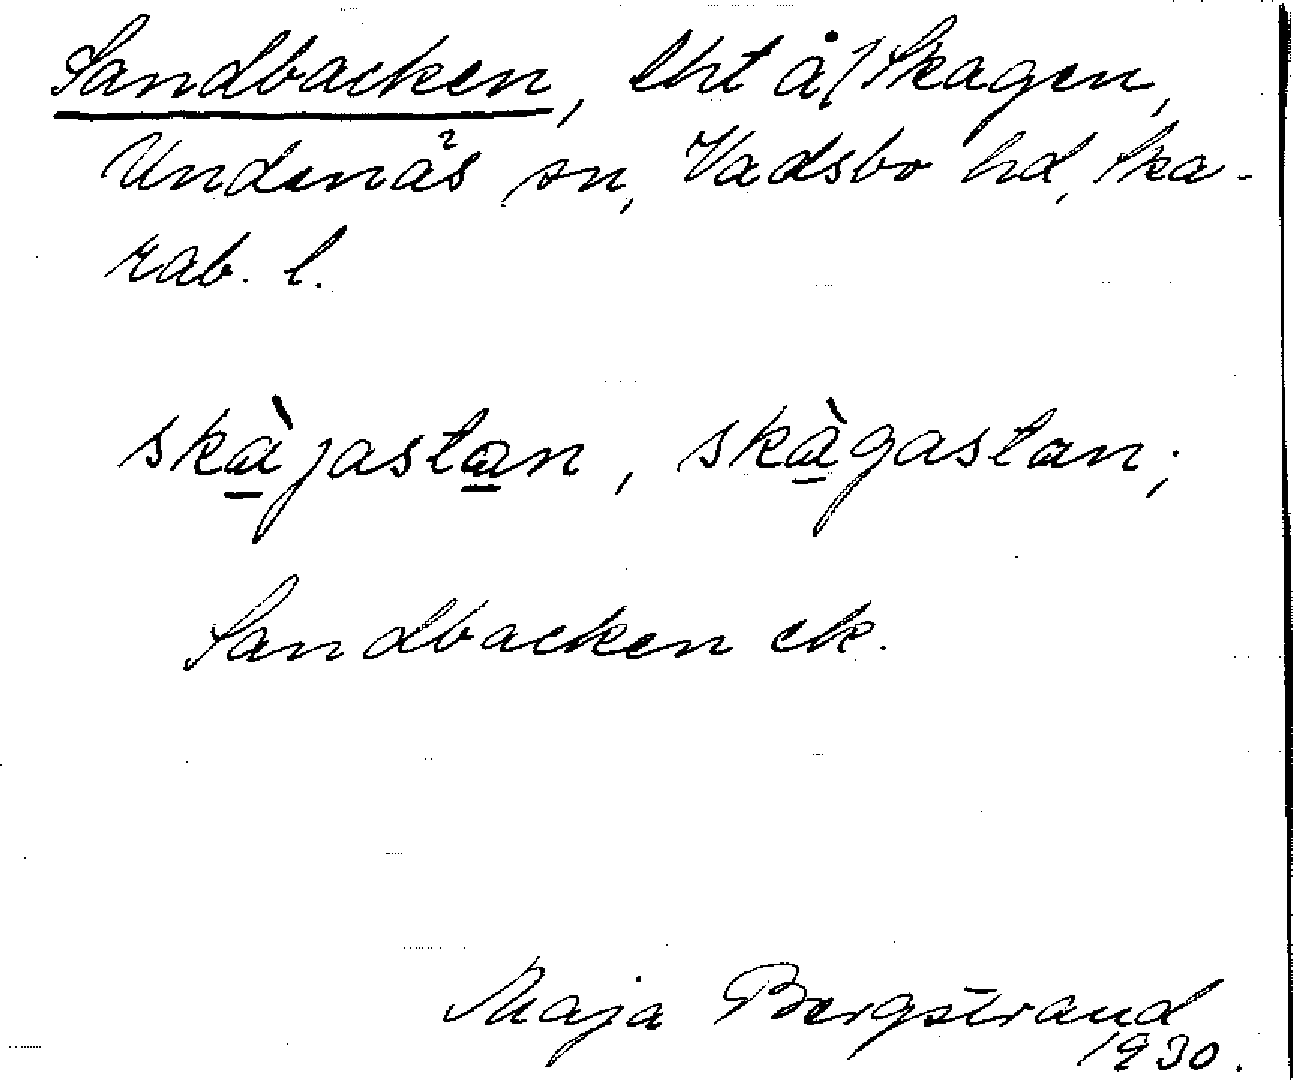 Sandbacken, lht å/Skagen,
Undenäs sn, Vadsbo hd, Ska-
rab. l.
skàjastan, skàgastan;
Sandbacken ek.
Maja Bergstrand
1930.